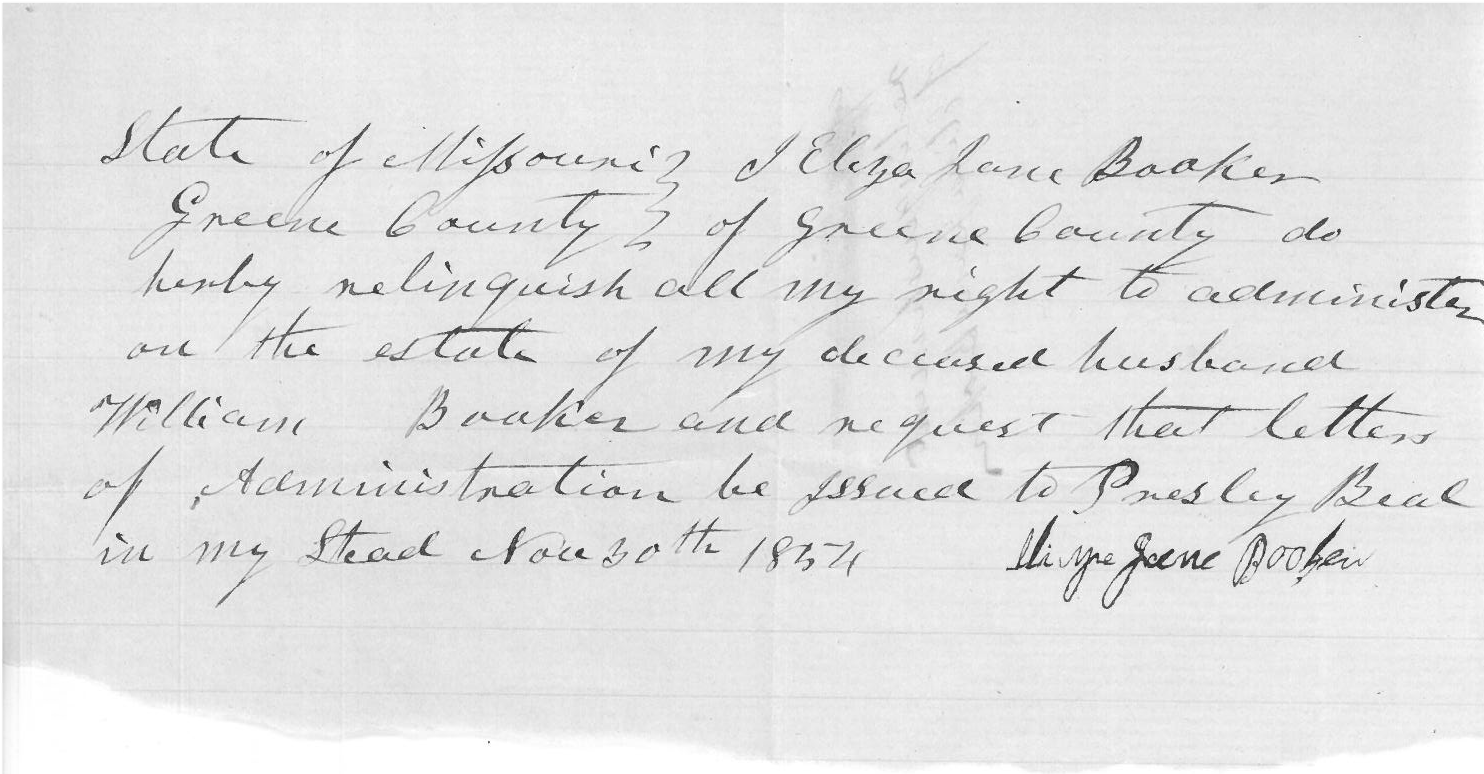 State of Missouri } I Eliza Jane Booker
Greene County } of Greene County do
herby relinquish all my right to administer
on the estate of my deceased husband
William Booker and request that letters
of Administration be issued to Presley Beal
in my Stead Nov 30th 1854 Jane Booker